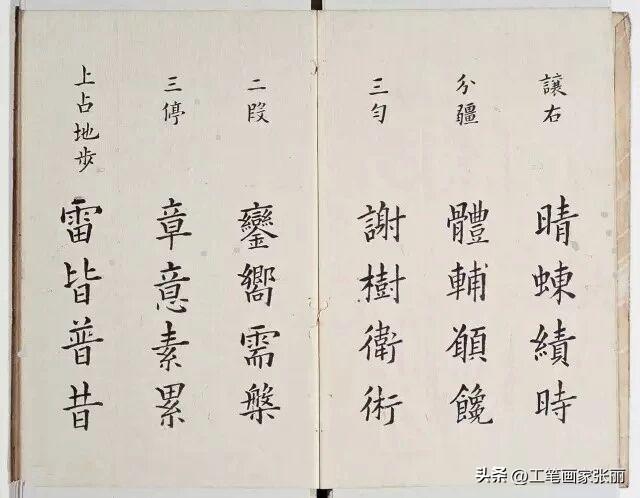 讓右 晴蝀績時
分疆 體輔願饞
三勻 謝樹衛術
二段 鑾嚮需槃
三停 章意素累
上占地步 雷皆普昔
头条 @工笔画家张丽